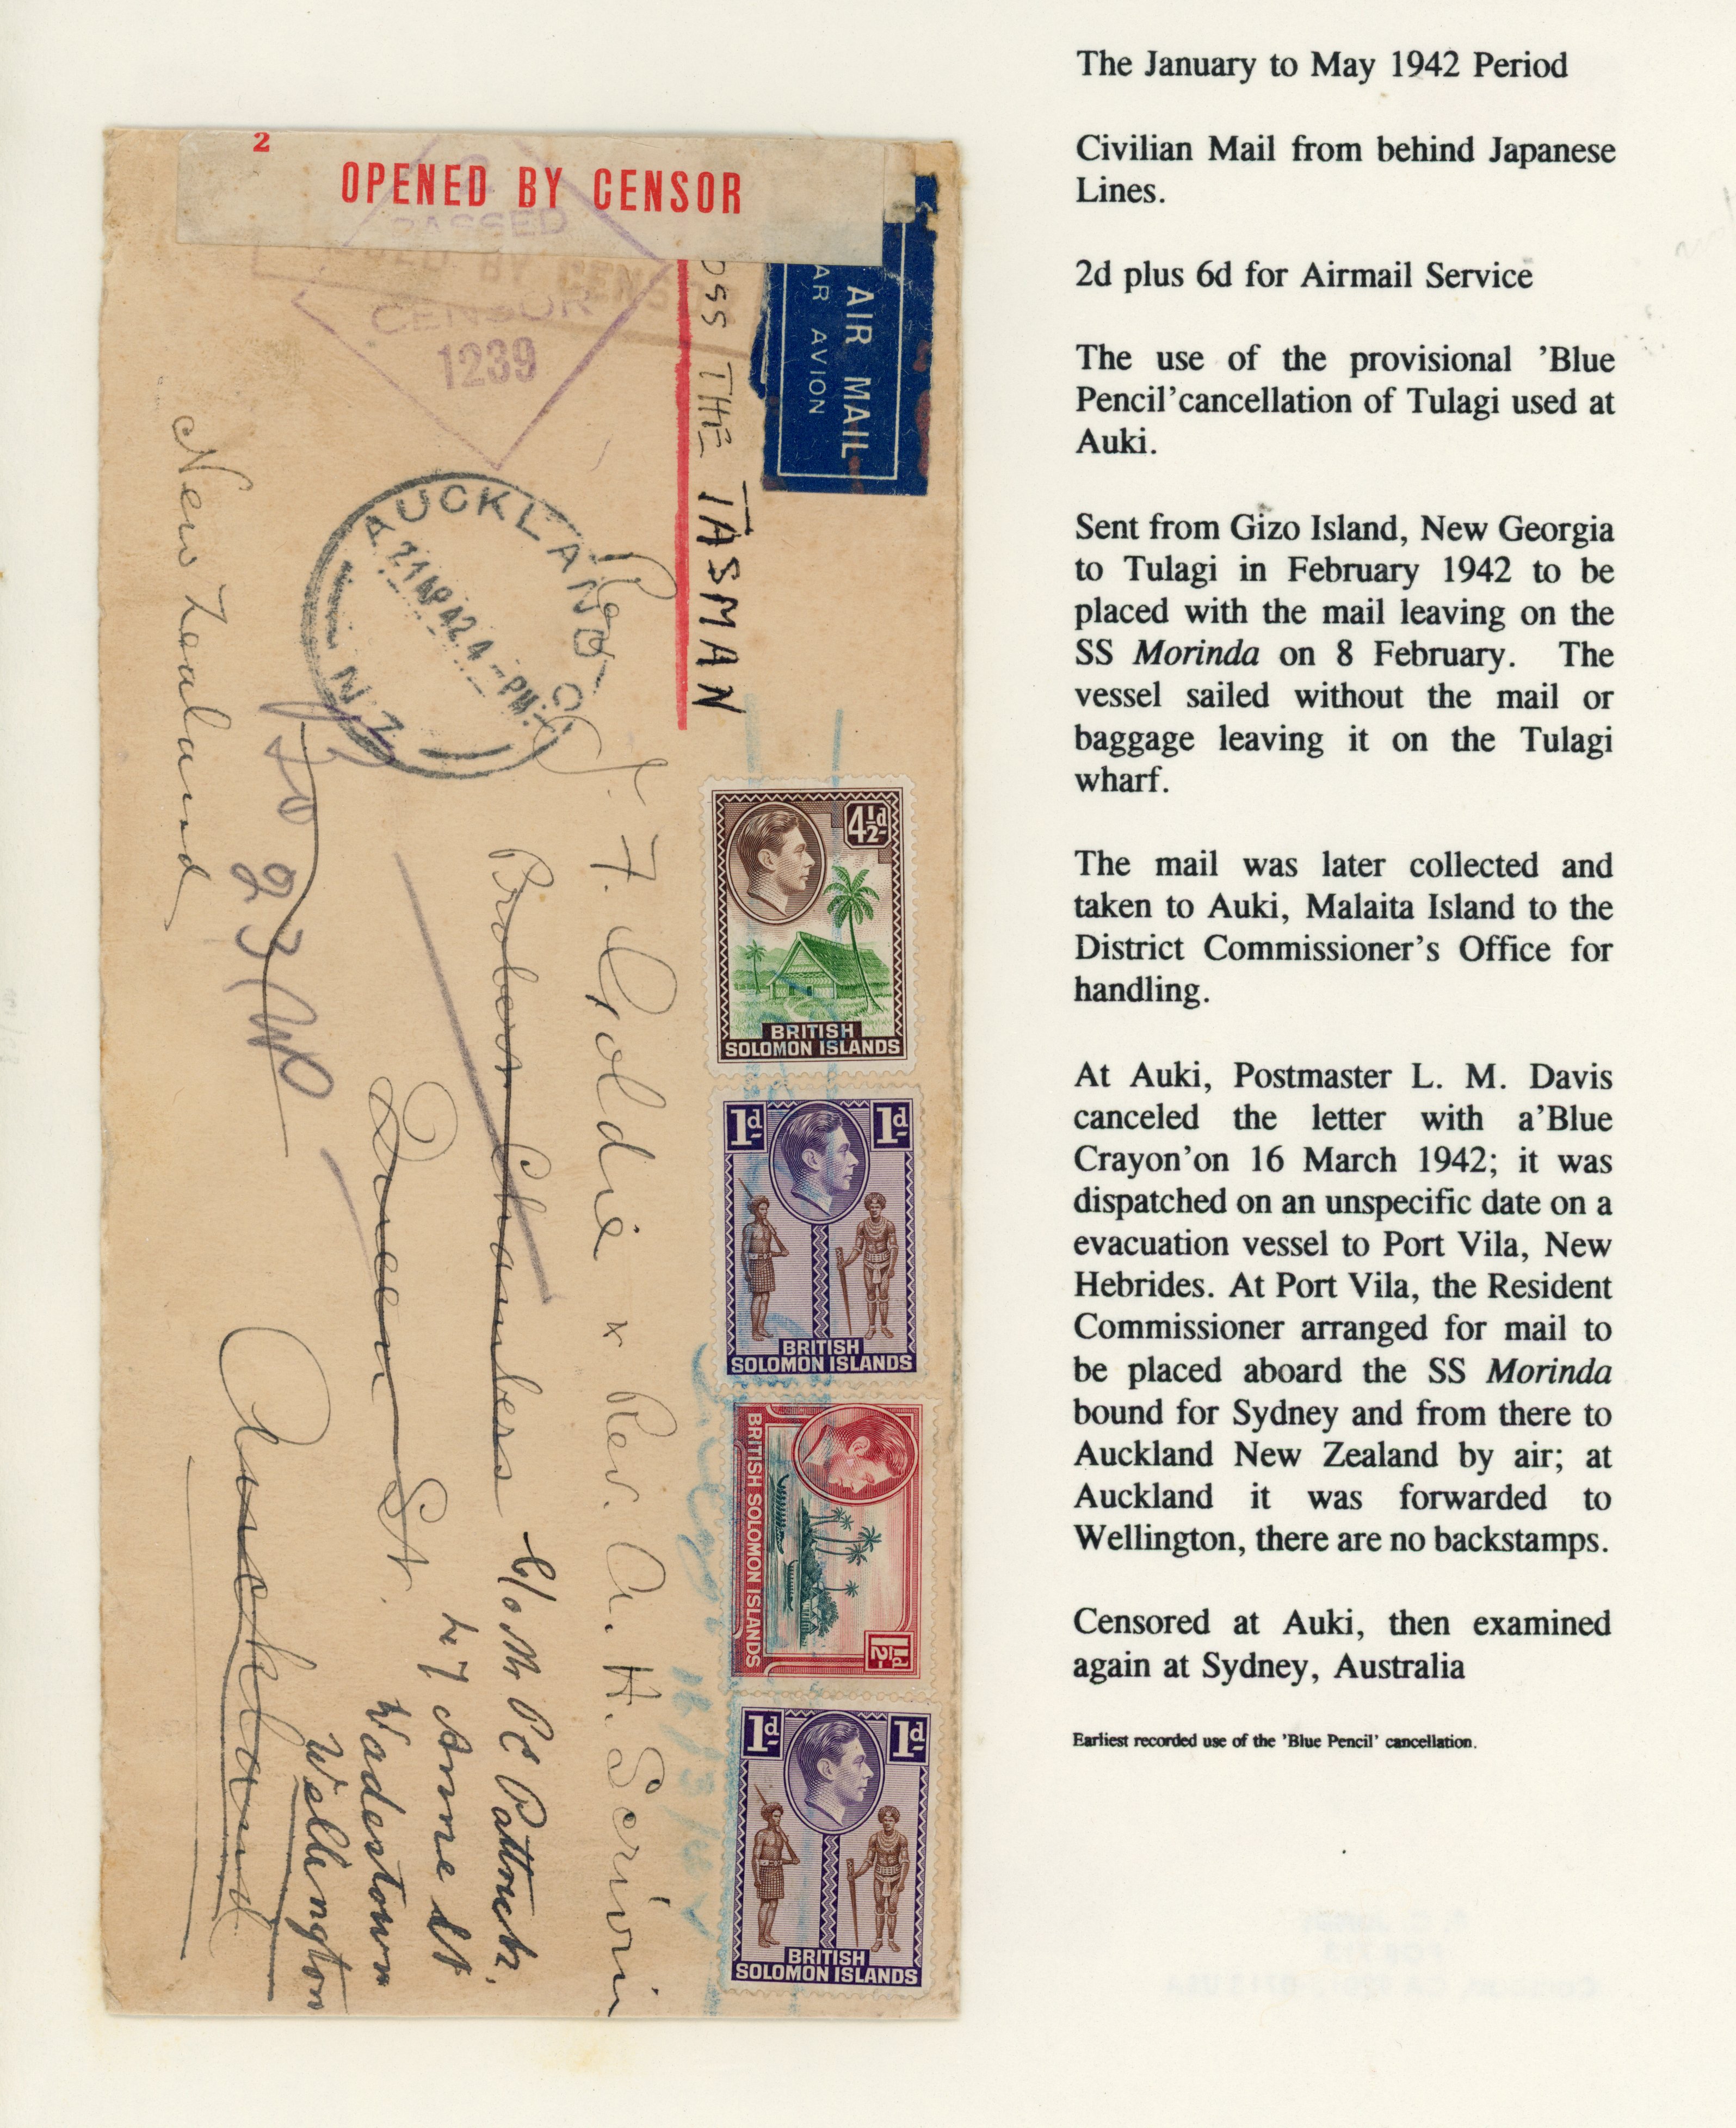 2
OPENED BY CENSOR
2
PASSED
BY CENSOR
CENSOR
1239
AIR MAIL
PAR AVION
OSS THE TASMAN
AUCKLAND
21 AP 42 4 - PM
N.Z.
4½d
BRITISH
SOLOMON ISLANDS
1d 1d
BRITISH
SOLOMON ISLANDS
BRITISH SOLOMON ISLANDS
1½d
1d 1d
BRITISH
SOLOMON ISLANDS
Tulagi
16/3/42
Rev J. F. Goldie x Rev. A. H. Scrivin
Probert Chambers
Queen St.
Auckland
New Zealand
C/o Mr
Anne St
Wadestown
Wellington
The January to May 1942 Period
Civilian Mail from behind Japanese
Lines.
2d plus 6d for Airmail Service
The use of the provisional 'Blue
Pencil'cancellation of Tulagi used at
Auki.
Sent from Gizo Island, New Georgia
to Tulagi in February 1942 to be
placed with the mail leaving on the
SS Morinda on 8 February. The
vessel sailed without the mail or
baggage leaving it on the Tulagi
wharf.
The mail was later collected and
taken to Auki, Malaita Island to the
District Commissioner's Office for
handling.
At Auki, Postmaster L. M. Davis
canceled the letter with a'Blue
Crayon'on 16 March 1942; it was
dispatched on an unspecific date on a
evacuation vessel to Port Vila, New
Hebrides. At Port Vila, the Resident
Commissioner arranged for mail to
be placed aboard the SS Morinda
bound for Sydney and from there to
Auckland New Zealand by air; at
Auckland it was forwarded to
Wellington, there are no backstamps.
Censored at Auki, then examined
again at Sydney, Australia
Earliest recorded use of the 'Blue Pencil' cancellation.